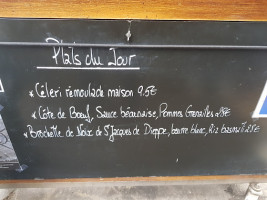 Plats du Jour
* Céleri remoulade maison 9,5€
* Côte de Boeuf, Sauce béarnaise, Pommes Grenailles 28€
* Brochette de Noix de St Jacques de Dieppe, beurre blanc, Riz basmati 25€